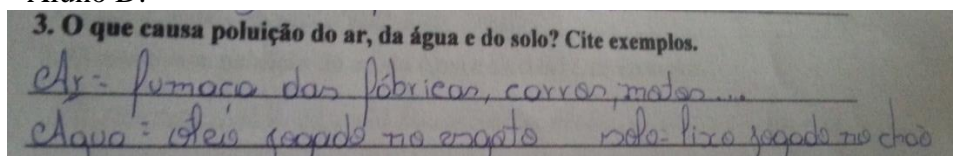 Aluno D:
3. O que causa poluição do ar, da água e do solo? Cite exemplos.
Ar = fumaça das fábricas, carros, motos...
Água = óleo jogado no esgoto solo = lixo jogado no chão